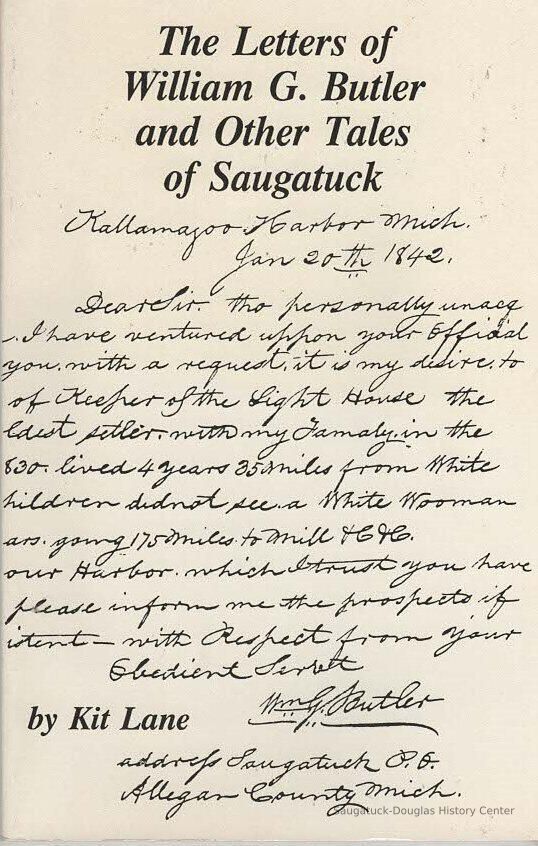 The Letters of
William G. Butler
and Other Tales
of Saugatuck
Kallamazoo Harbor Mich.
Jan 20th 1842.
Dear Sir. tho personally unacq
I have ventured uppon your Official
you. with a request, it is my desire. to
of Keeper of the Light House the
ldest setler. with my Famaly. in the
830. lived 4 years 35 miles from White
hildren did not see. a White Wooman
ars. going 175 miles. to Mill &C &C.
our Harbor. which I trust you have
please inform me the prospects if
istent — with Respect from your
Obedient Servt
Wm G. Butler
by Kit Lane
address Saugatuck P. O.
Allegan County Mich.
Saugatuck-Douglas History Center